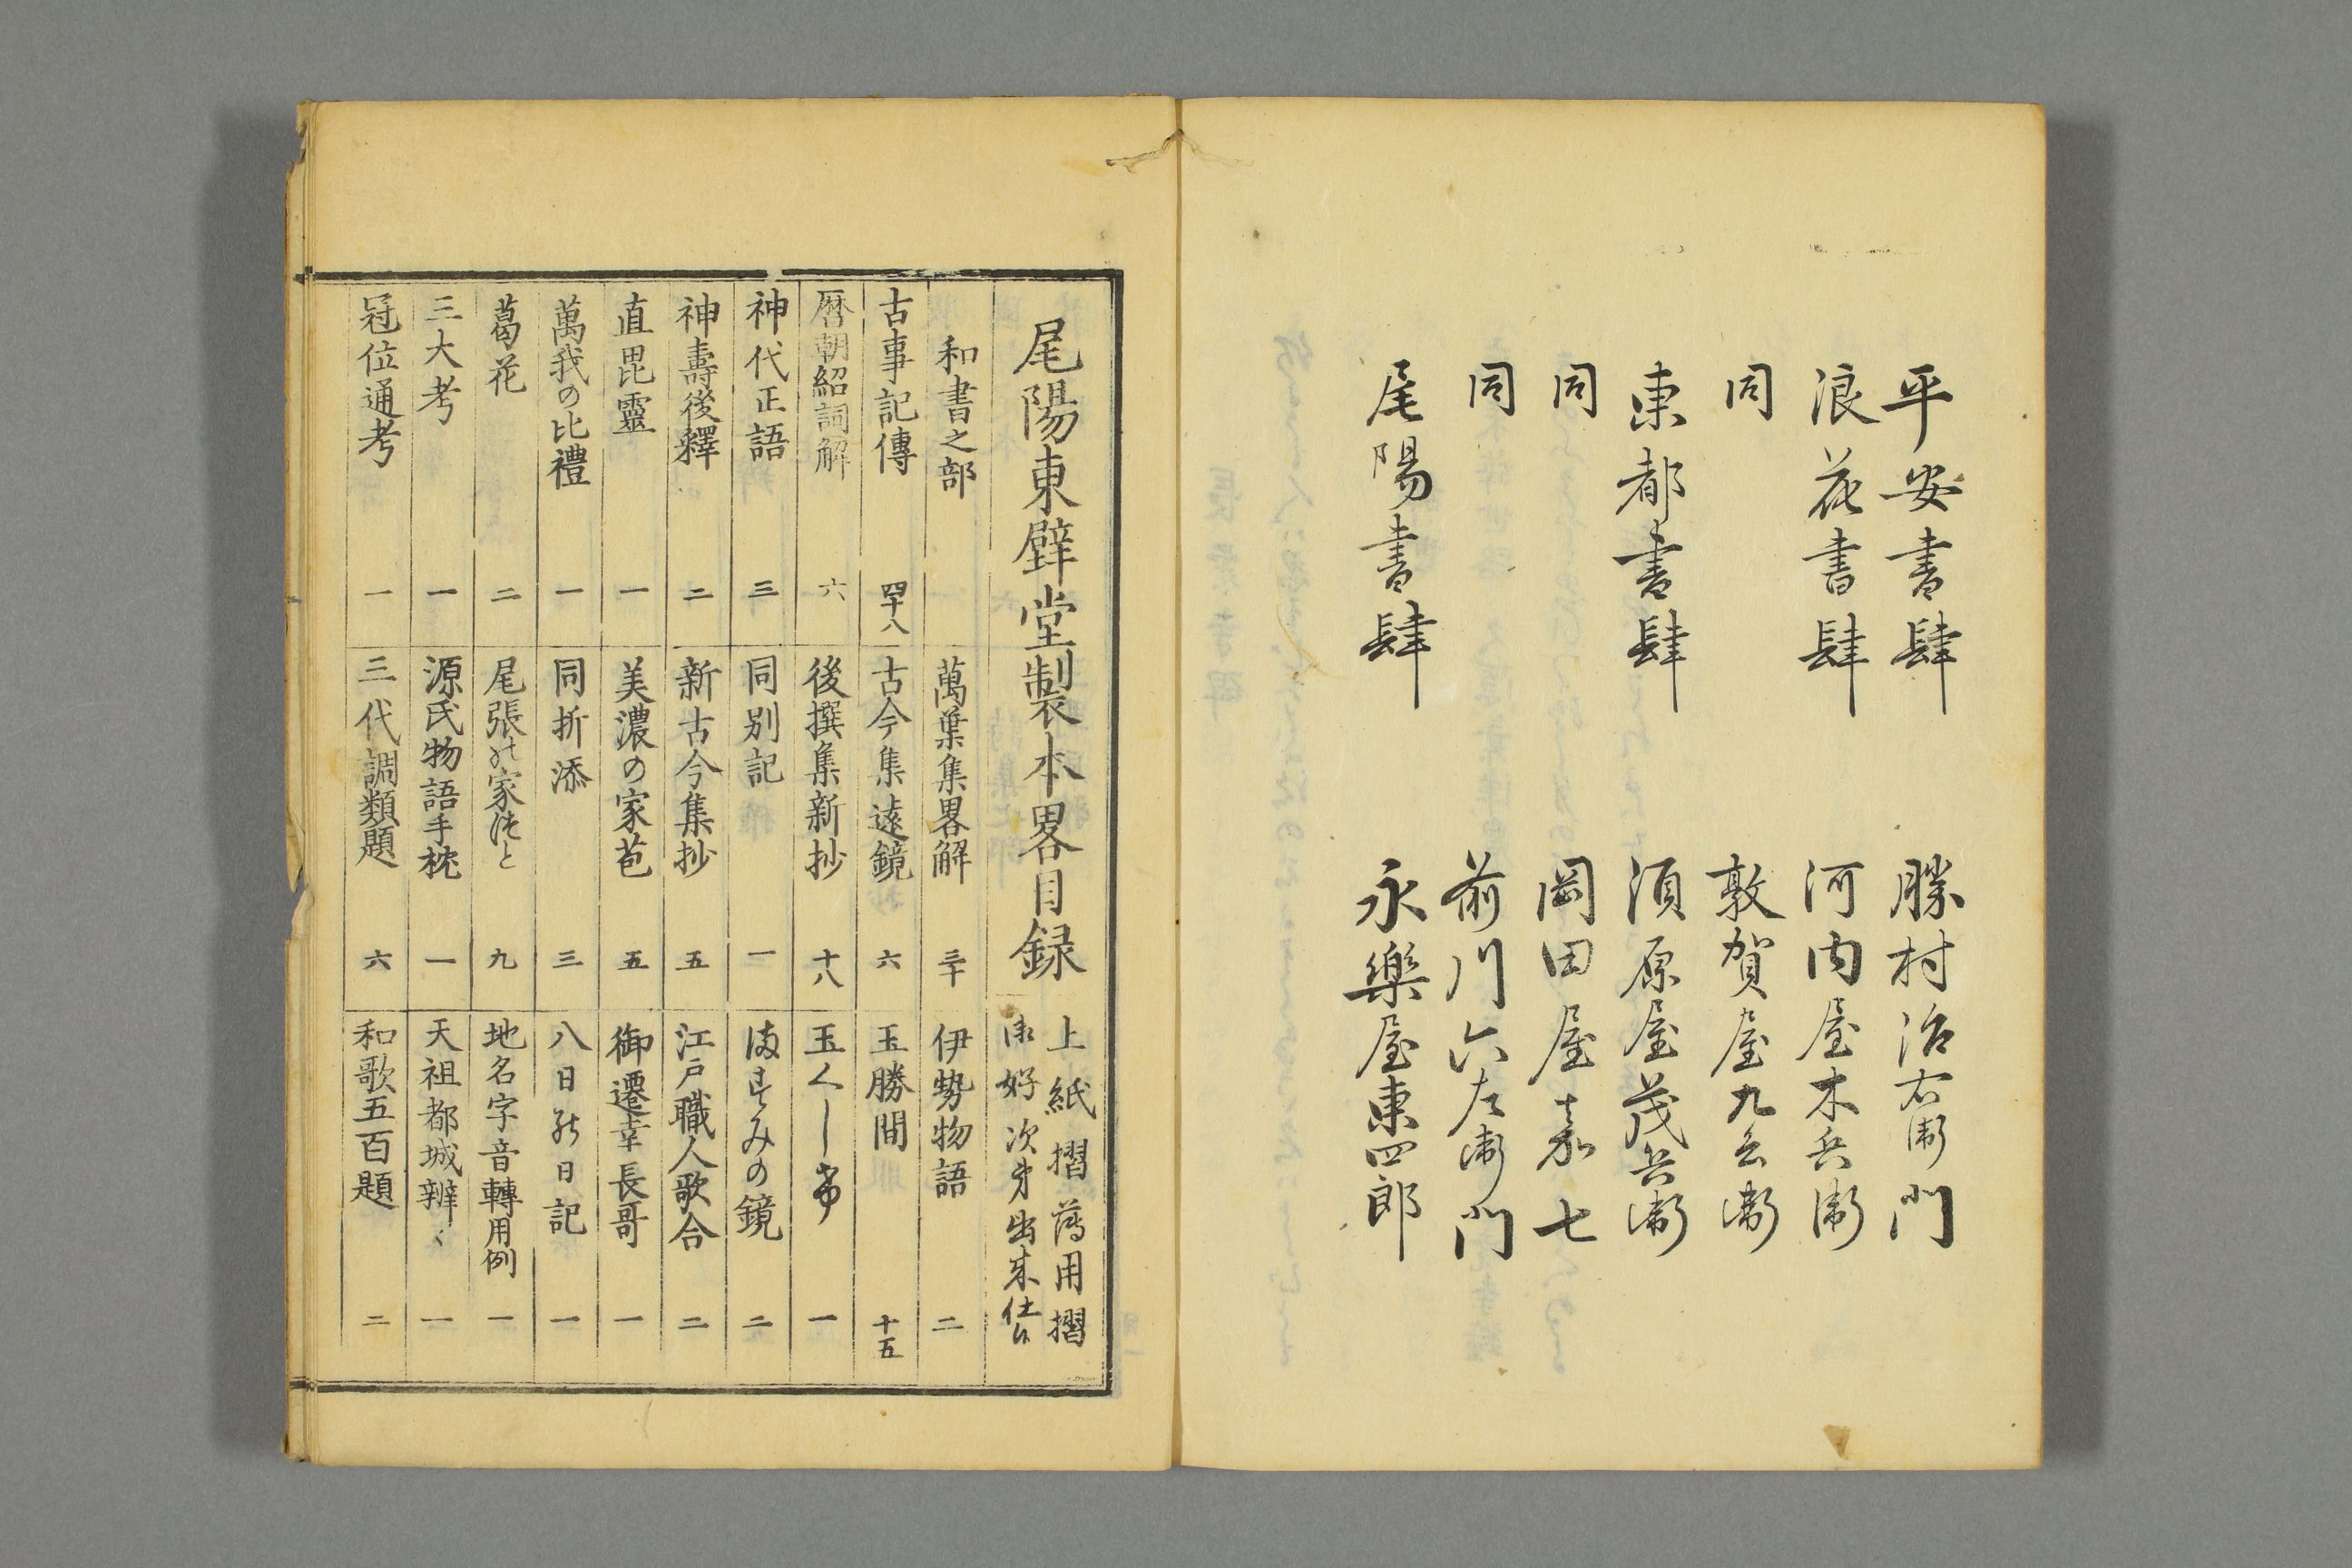 平安書肆 勝村治右衛門
浪花書肆 河内屋木兵衛
同 敦賀屋九兵衛
東都書肆 須原屋茂兵衛
同 岡田屋嘉七
同 前川六左衛門
尾陽書肆 永樂屋東四郎
尾陽東壁堂製本畧目録
上紙摺薄用摺
御好次第出来仕候
和書之部
萬葉集畧解 三十
伊勢物語 二
古事記傳 四十八
古今集遠鏡 六
玉勝間 十五
暦朝紹詞解 六
後撰集新抄 十八
玉くし希 一
神代正語 三
同別記 一
満寸みの鏡 二
神壽後釋 二
新古今集抄 五
江戸職人歌合 二
直毘靈 一
美濃の家苞 五
御遷幸長哥 一
萬我の比禮 一
同折添 三
八日能日記 一
葛花 二
尾張能家徒と 九
地名字音轉用例 一
三大考 一
源氏物語手枕 一
天祖都城辨々 一
冠位通考 一
三代調類題 六
和歌五百題 二